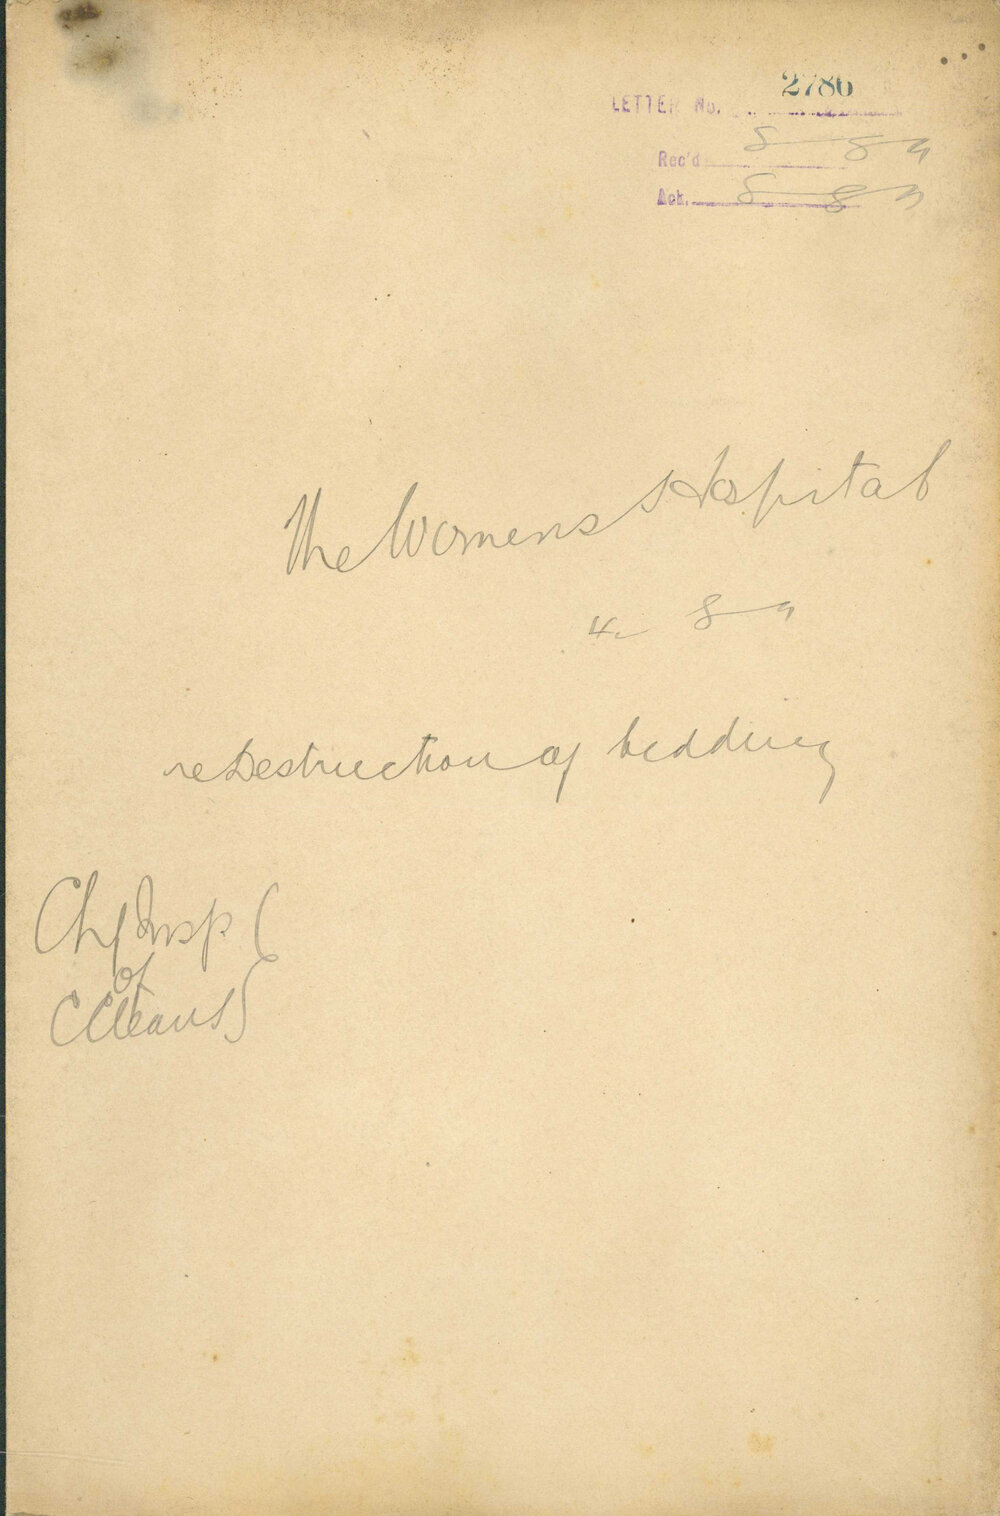 LETTER No. 2786
Rec'd 8 8 9
Ack. 8 8 9
The Womens Hospital
4 8 9
re Destruction of bedding
Chf Insp
of
Cleans